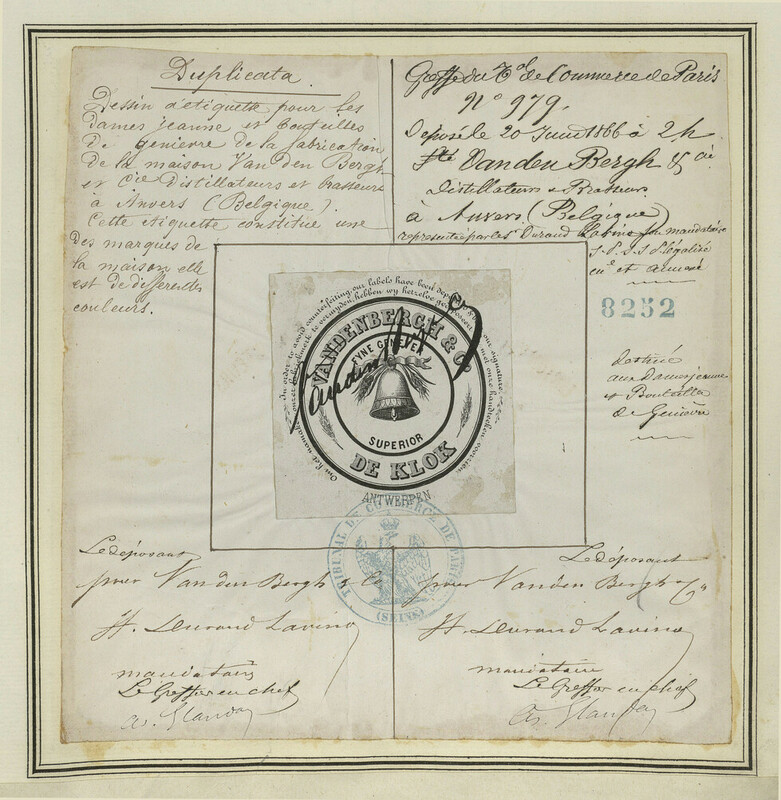 Duplicata
Dessin d'etiquette pour les
dames jeanne et bouteilles
de genievre de la fabrication
de la maison Van den Bergh
et Cie Distillateurs et brasseurs
à Anvers (Belgique).
Cette etiquette constitue une
des marques de
la maison elle
est de differentes
couleurs.
Greffe du Tal de Commerce de Paris
No 979.
Deposé le 20 Juin 1866 à 2h
Van den Bergh & Cie
Distillateurs & Brasseurs
à Anvers (Belgique)
representé par le Sr Durand Lavino mandataire
8252
destiné
aux Dames jeanne
et Bouteilles
de Genièvre
In order to avoid counterfeiting our labels have been our signature
Om het namaken onzer te vermyden, hebben wy hetzelve met onze handteeken voorzien
VANDENBERGH & Co
FYNE GENEVER
SUPERIOR
DE KLOK
ANTWERPEN
TRIBUNAL DE COMMERCE DE PARIS
(SEINE)
Le déposant
pour Van den Bergh & Co
H. Durand Lavino
mandataire
Le Greffier en chef
Le déposant
pour Vanden Bergh & Co
H. Durand Lavino
mandataire
Le Greffier en chef